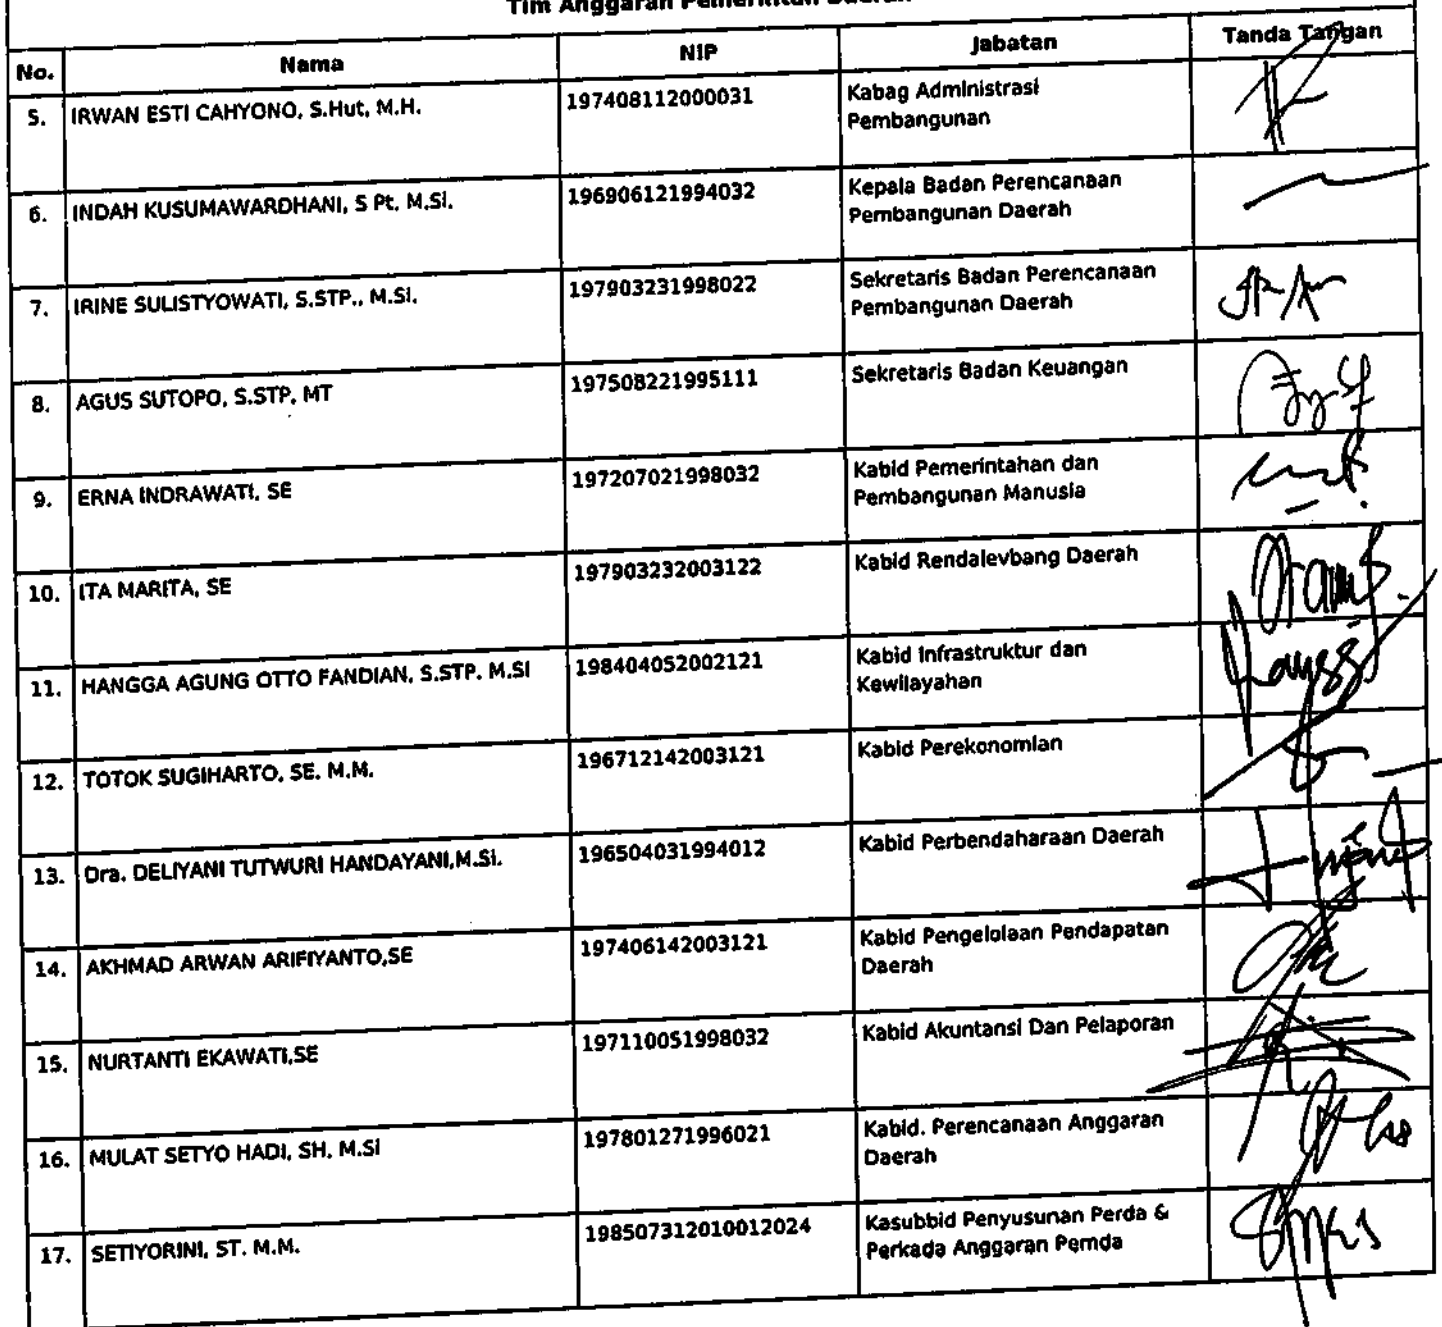 Tim Anggaran Pemerintah Daerah
No. Nama NIP Jabatan Tanda Tangan
5. IRWAN ESTI CAHYONO, S.Hut, M.H. 197408112000031 Kabag Administrasi
Pembangunan
6. INDAH KUSUMAWARDHANI, S Pt. M.Si. 196906121994032 Kepala Badan Perencanaan
Pembangunan Daerah
7. IRINE SULISTYOWATI, S.STP., M.Si. 197903231998022 Sekretaris Badan Perencanaan
Pembangunan Daerah
8. AGUS SUTOPO, S.STP, MT 197508221995111 Sekretaris Badan Keuangan
9. ERNA INDRAWATI, SE 197207021998032 Kabid Pemerintahan dan
Pembangunan Manusia
10. ITA MARITA, SE 197903232003122 Kabid Rendalevbang Daerah
11. HANGGA AGUNG OTTO FANDIAN, S.STP. M.SI 198404052002121 Kabid Infrastruktur dan
Kewilayahan
12. TOTOK SUGIHARTO, SE. M.M. 196712142003121 Kabid Perekonomian
13. Dra. DELIYANI TUTWURI HANDAYANI,M.Si. 196504031994012 Kabid Perbendaharaan Daerah
14. AKHMAD ARWAN ARIFIYANTO,SE 197406142003121 Kabid Pengelolaan Pendapatan
Daerah
15. NURTANTI EKAWATI,SE 197110051998032 Kabid Akuntansi Dan Pelaporan
16. MULAT SETYO HADI, SH, M.Si 197801271996021 Kabid. Perencanaan Anggaran
Daerah
17. SETIYORINI, ST. M.M. 198507312010012024 Kasubbid Penyusunan Perda &
Perkada Anggaran Pemda